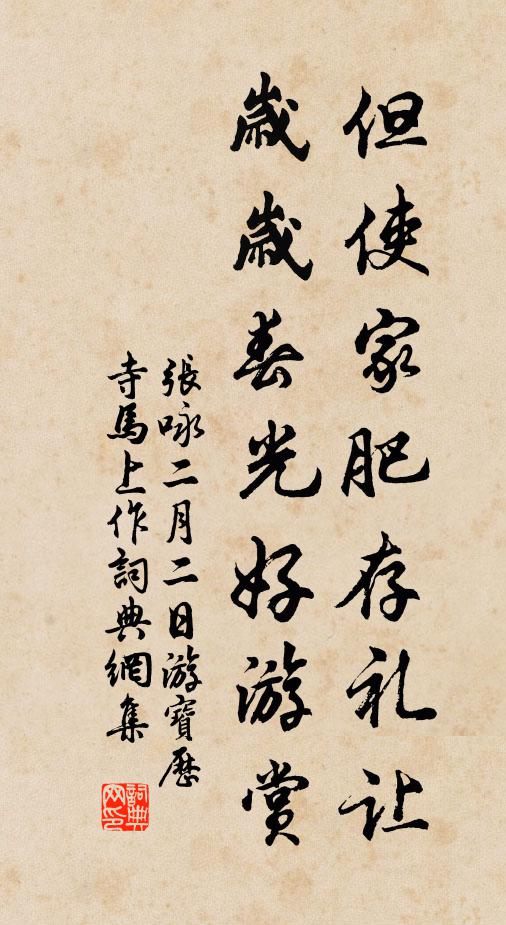 但使家肥存礼让
歲歲春光好游赏
張咏二月二日游寶歷
寺馬上作詞典網集
詞典
网印